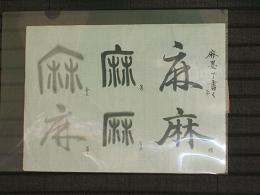 麻墨で書く
麻
麻
麻
麻
麻
麻